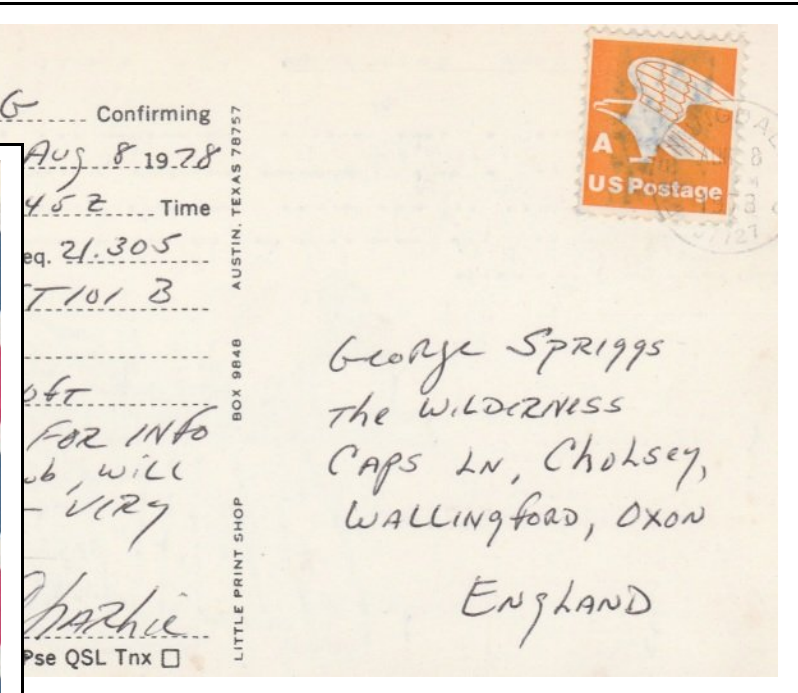 G Confirming
Aug 8 1978
45 Z Time
eq. 21.305
T101 B
oft
FOR INFO
ub, will
- VERY
Charlie
Pse QSL Tnx
AUSTIN, TEXAS 78757
BOX 9848
LITTLE PRINT SHOP
A
US Postage
8
George Spriggs
The Wilderness
Caps Ln, Cholsey,
Wallingford, Oxon
England